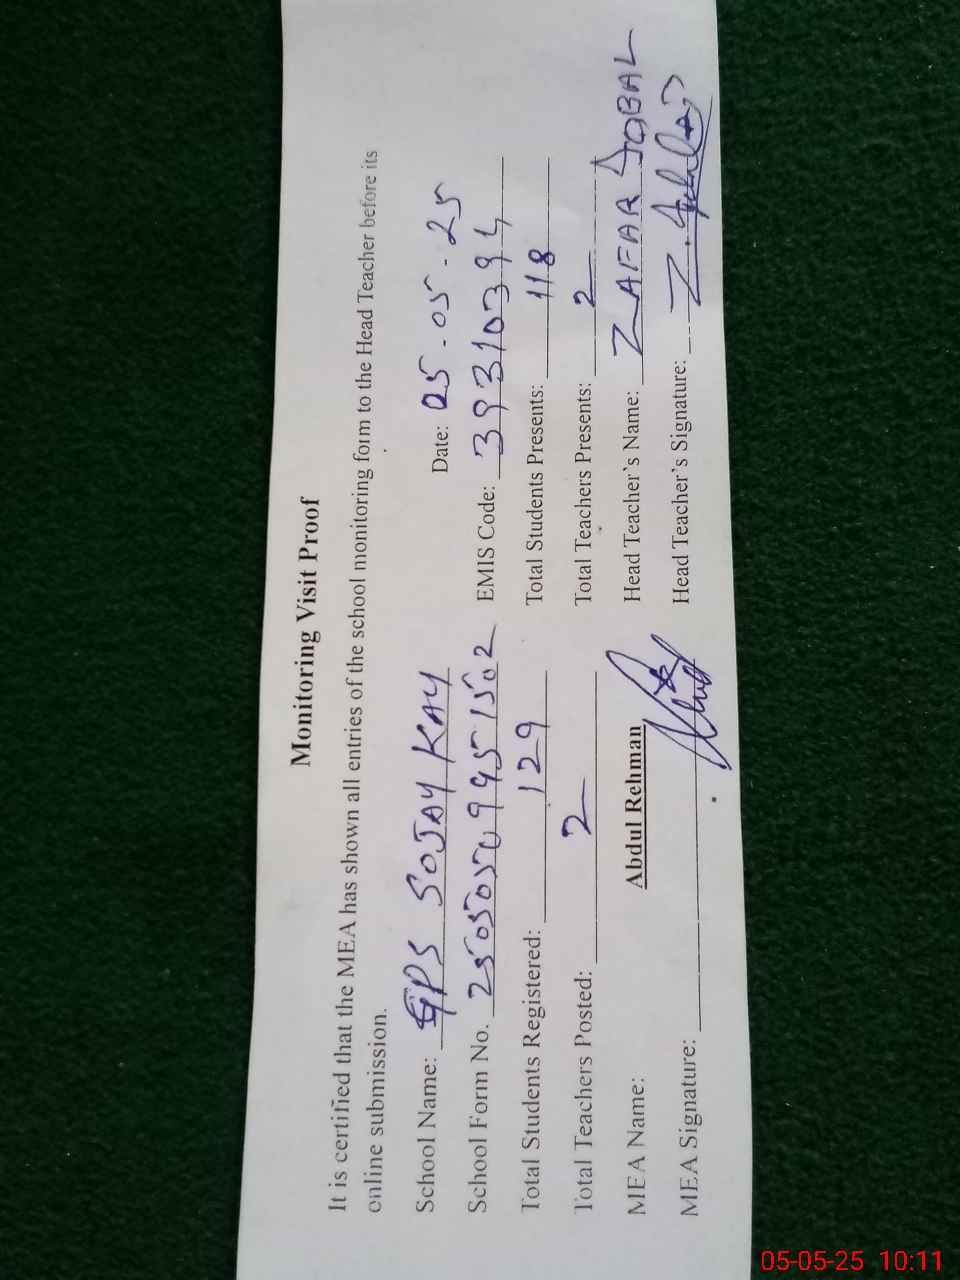 Monitoring Visit Proof
It is certified that the MEA has shown all entries of the school monitoring form to the Head Teacher before its
online submission.
School Name: GPS SOJAY KAY Date: 05-05-25
School Form No. 25050509951502 EMIS Code: 39310394
Total Students Registered: 129 Total Students Presents: 118
Total Teachers Posted: 2 Total Teachers Presents: 2
MEA Name: Abdul Rehman Head Teacher's Name: ZAFAR IQBAL
MEA Signature: Head Teacher's Signature:
05-05-25 10:11